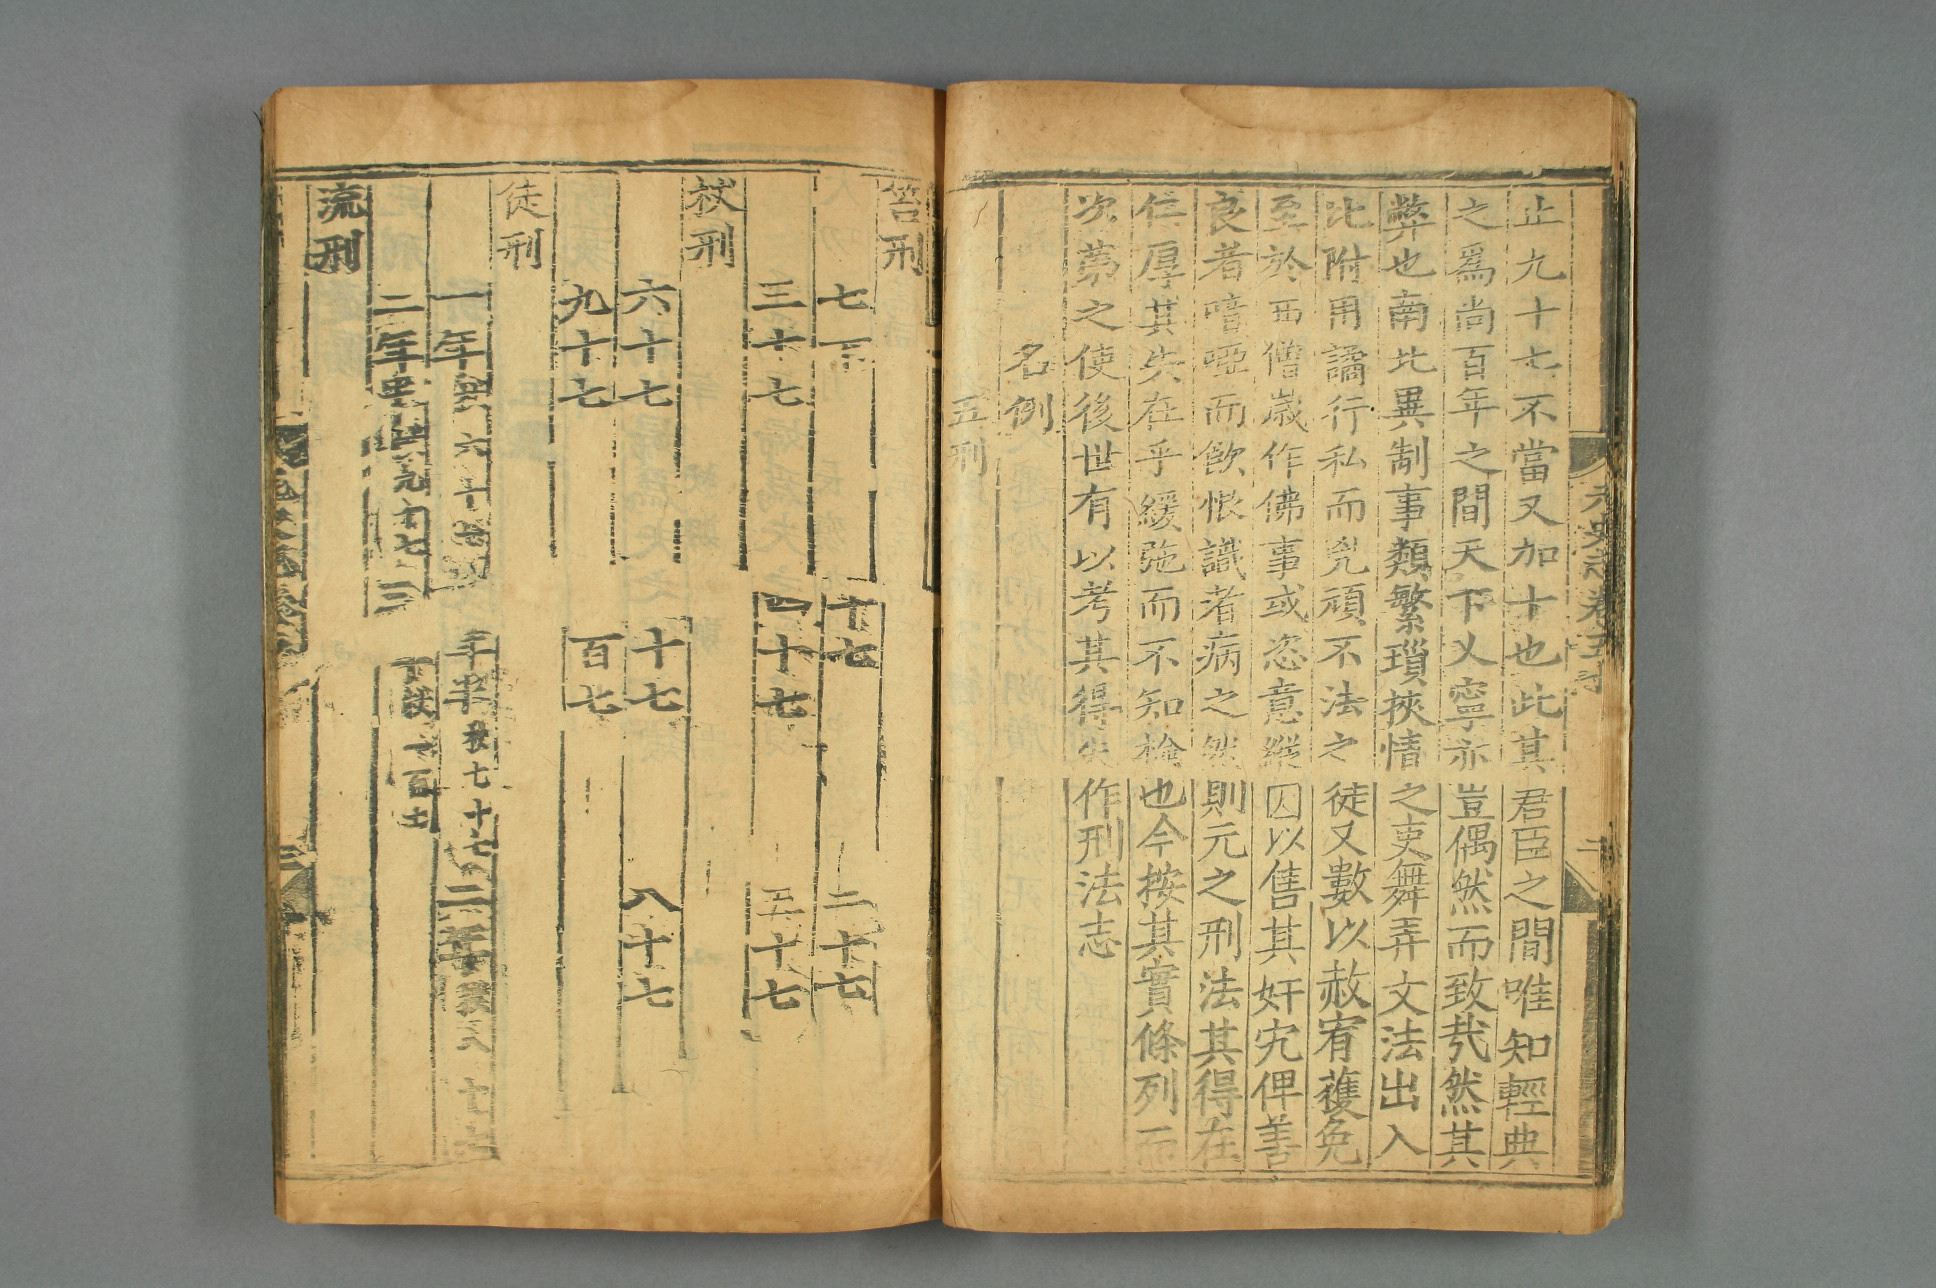 止九十七不當又加十也此其君臣之間唯知輕典
之爲尚百年之間天下乂寧亦豈偶然而致㢤然其
弊也南北異制事類繁瑣挾情之吏舞弄文法出入
比附用譎行私而兇頑不法之徒又數以赦宥獲免
至於西僧歲作佛事或恣意縱囚以售其奸宄俾善
良者喑啞而飲恨識者病之然則元之刑法其得在
仁厚其失在乎緩弛而不知檢也今按其實條列而
次第之使後世有以考其得失作刑法志
名例
五刑
笞刑
七下 十七 二十七
三十七 四十七 五十七
杖刑
六十七 七 八十七
九十七 百七
徒刑
一年 六十七 年半杖七十七 二年 八十七
二年 九十七 三 百七
流刑